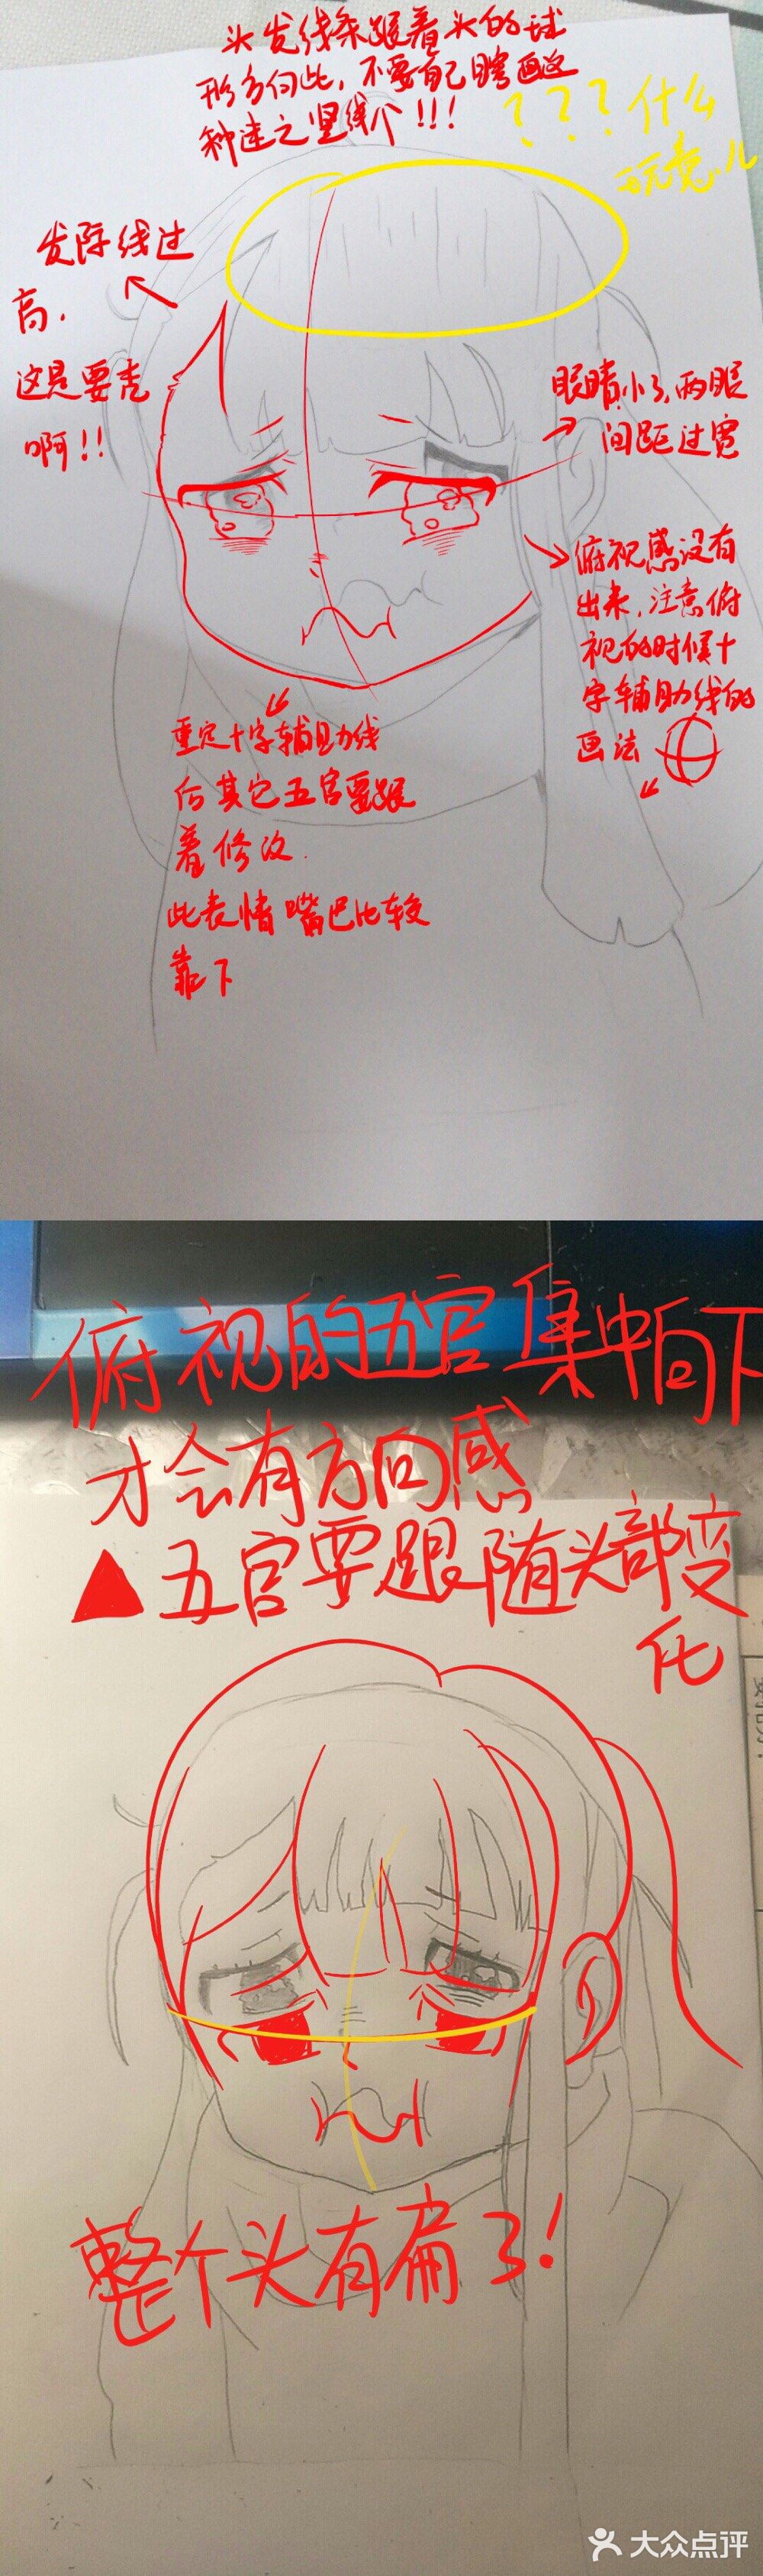 头发线条跟着头的球
形方向比，不要自己瞎画这
种迷之竖线个!!!
???什么
玩意儿
发际线过
高.
这是要秃
啊!!
眼睛小了,两眼
间距过宽
俯视感没有
出来,注意俯
视的时候十
字辅助线的
画法
重定十字辅助线
后其它五官要跟
着修改.
此表情嘴巴比较
靠下
俯视的五官集中向下
才会有方向感
▲五官要跟随头部变
化
整个头有扁了!
大众点评